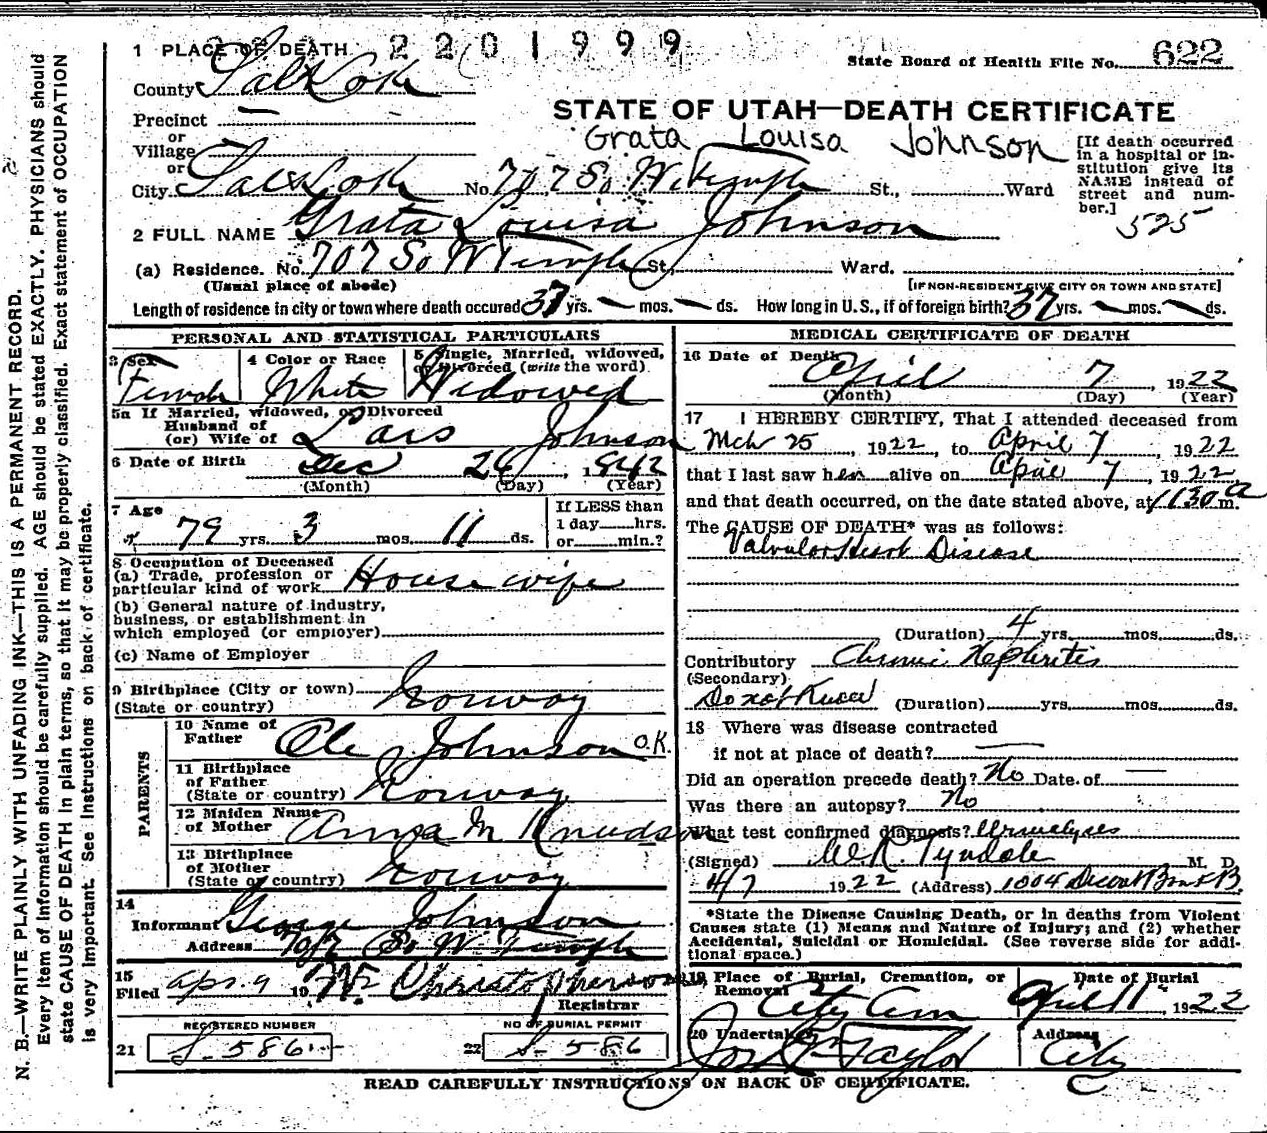 2201999
1 PLACE OF DEATH
State Board of Health File No. 622
County Salt Lake
STATE OF UTAH—DEATH CERTIFICATE
Precinct
or
Village
or
Grata Louisa Johnson
[If death occurred in a hospital or institution give its NAME instead of street and number.]
525
City Salt Lake No. 707 So W. Temple St., Ward
2 FULL NAME Grata Louisa Johnson
(a) Residence. No. 707 So W Temple St., Ward.
(Usual place of abode)
[IF NON-RESIDENT GIVE CITY OR TOWN AND STATE]
Length of residence in city or town where death occured 37 yrs. — mos. — ds. How long in U.S., if of foreign birth? 37 yrs. — mos. — ds.
PERSONAL AND STATISTICAL PARTICULARS
3 Sex
Female
4 Color or Race
White
5 Single, Married, widowed,
or Divorced (write the word)
Widowed
5a If Married, widowed, or Divorced
Husband of
(or) Wife of Lars Johnson
6 Date of Birth Dec 26, 1842
(Month) (Day) (Year)
7 Age
79 yrs. 3 mos. 11 ds.
If LESS than
1 day hrs.
or min.?
8 Occupation of Deceased
(a) Trade, profession or
particular kind of work House wife
(b) General nature of industry,
business, or establishment in
which employed (or employer)
(c) Name of Employer
9 Birthplace (City or town)
(State or country) Norway
PARENTS
10 Name of
Father Ole Johnson O.K.
11 Birthplace
of Father
(State or country) Norway
12 Maiden Name
of Mother Anna M Knudson
13 Birthplace
of Mother
(State or country) Norway
14
Informant George Johnson
Address 707 So W. Temple
15
Filed Apr. 9 19 Christopherson
Registrar
REGISTERED NUMBER
21 S-586
NO OF BURIAL PERMIT
22 S-586
MEDICAL CERTIFICATE OF DEATH
16 Date of Death
April 7, 1922
(Month) (Day) (Year)
17 I HEREBY CERTIFY, That I attended deceased from
Mch 25, 1922 to April 7, 1922
that I last saw her alive on April 7, 1922
and that death occurred, on the date stated above, at 1130 a m.
The CAUSE OF DEATH* was as follows:
Valvular Heart Disease
(Duration) 4 yrs. mos. ds.
Contributory Chronic Nephritis
(Secondary)
Do not Know (Duration) yrs. mos. ds.
18 Where was disease contracted
if not at place of death? —
Did an operation precede death? No Date of —
Was there an autopsy? No
What test confirmed diagnosis? Urinalyses
(Signed) Tyndale M. D.
4/7 1922 (Address) 1004 Deseret Bank B.
*State the Disease Causing Death, or in deaths from Violent
Causes state (1) Means and Nature of Injury; and (2) whether
Accidental, Suicidal or Homicidal. (See reverse side for addi-
tional space.)
19 Place of Burial, Cremation, or
Removal City Cem
Date of Burial
April 11, 1922
20 Undertaker
Jos Taylor
Address
City
READ CAREFULLY INSTRUCTIONS ON BACK OF CERTIFICATE.
N. B.—WRITE PLAINLY WITH UNFADING INK—THIS IS A PERMANENT RECORD.
Every item of information should be carefully supplied. AGE should be stated EXACTLY. PHYSICIANS should
state CAUSE OF DEATH in plain terms, so that it may be properly classified. Exact statement of OCCUPATION
is very important. See instructions on back of certificate.